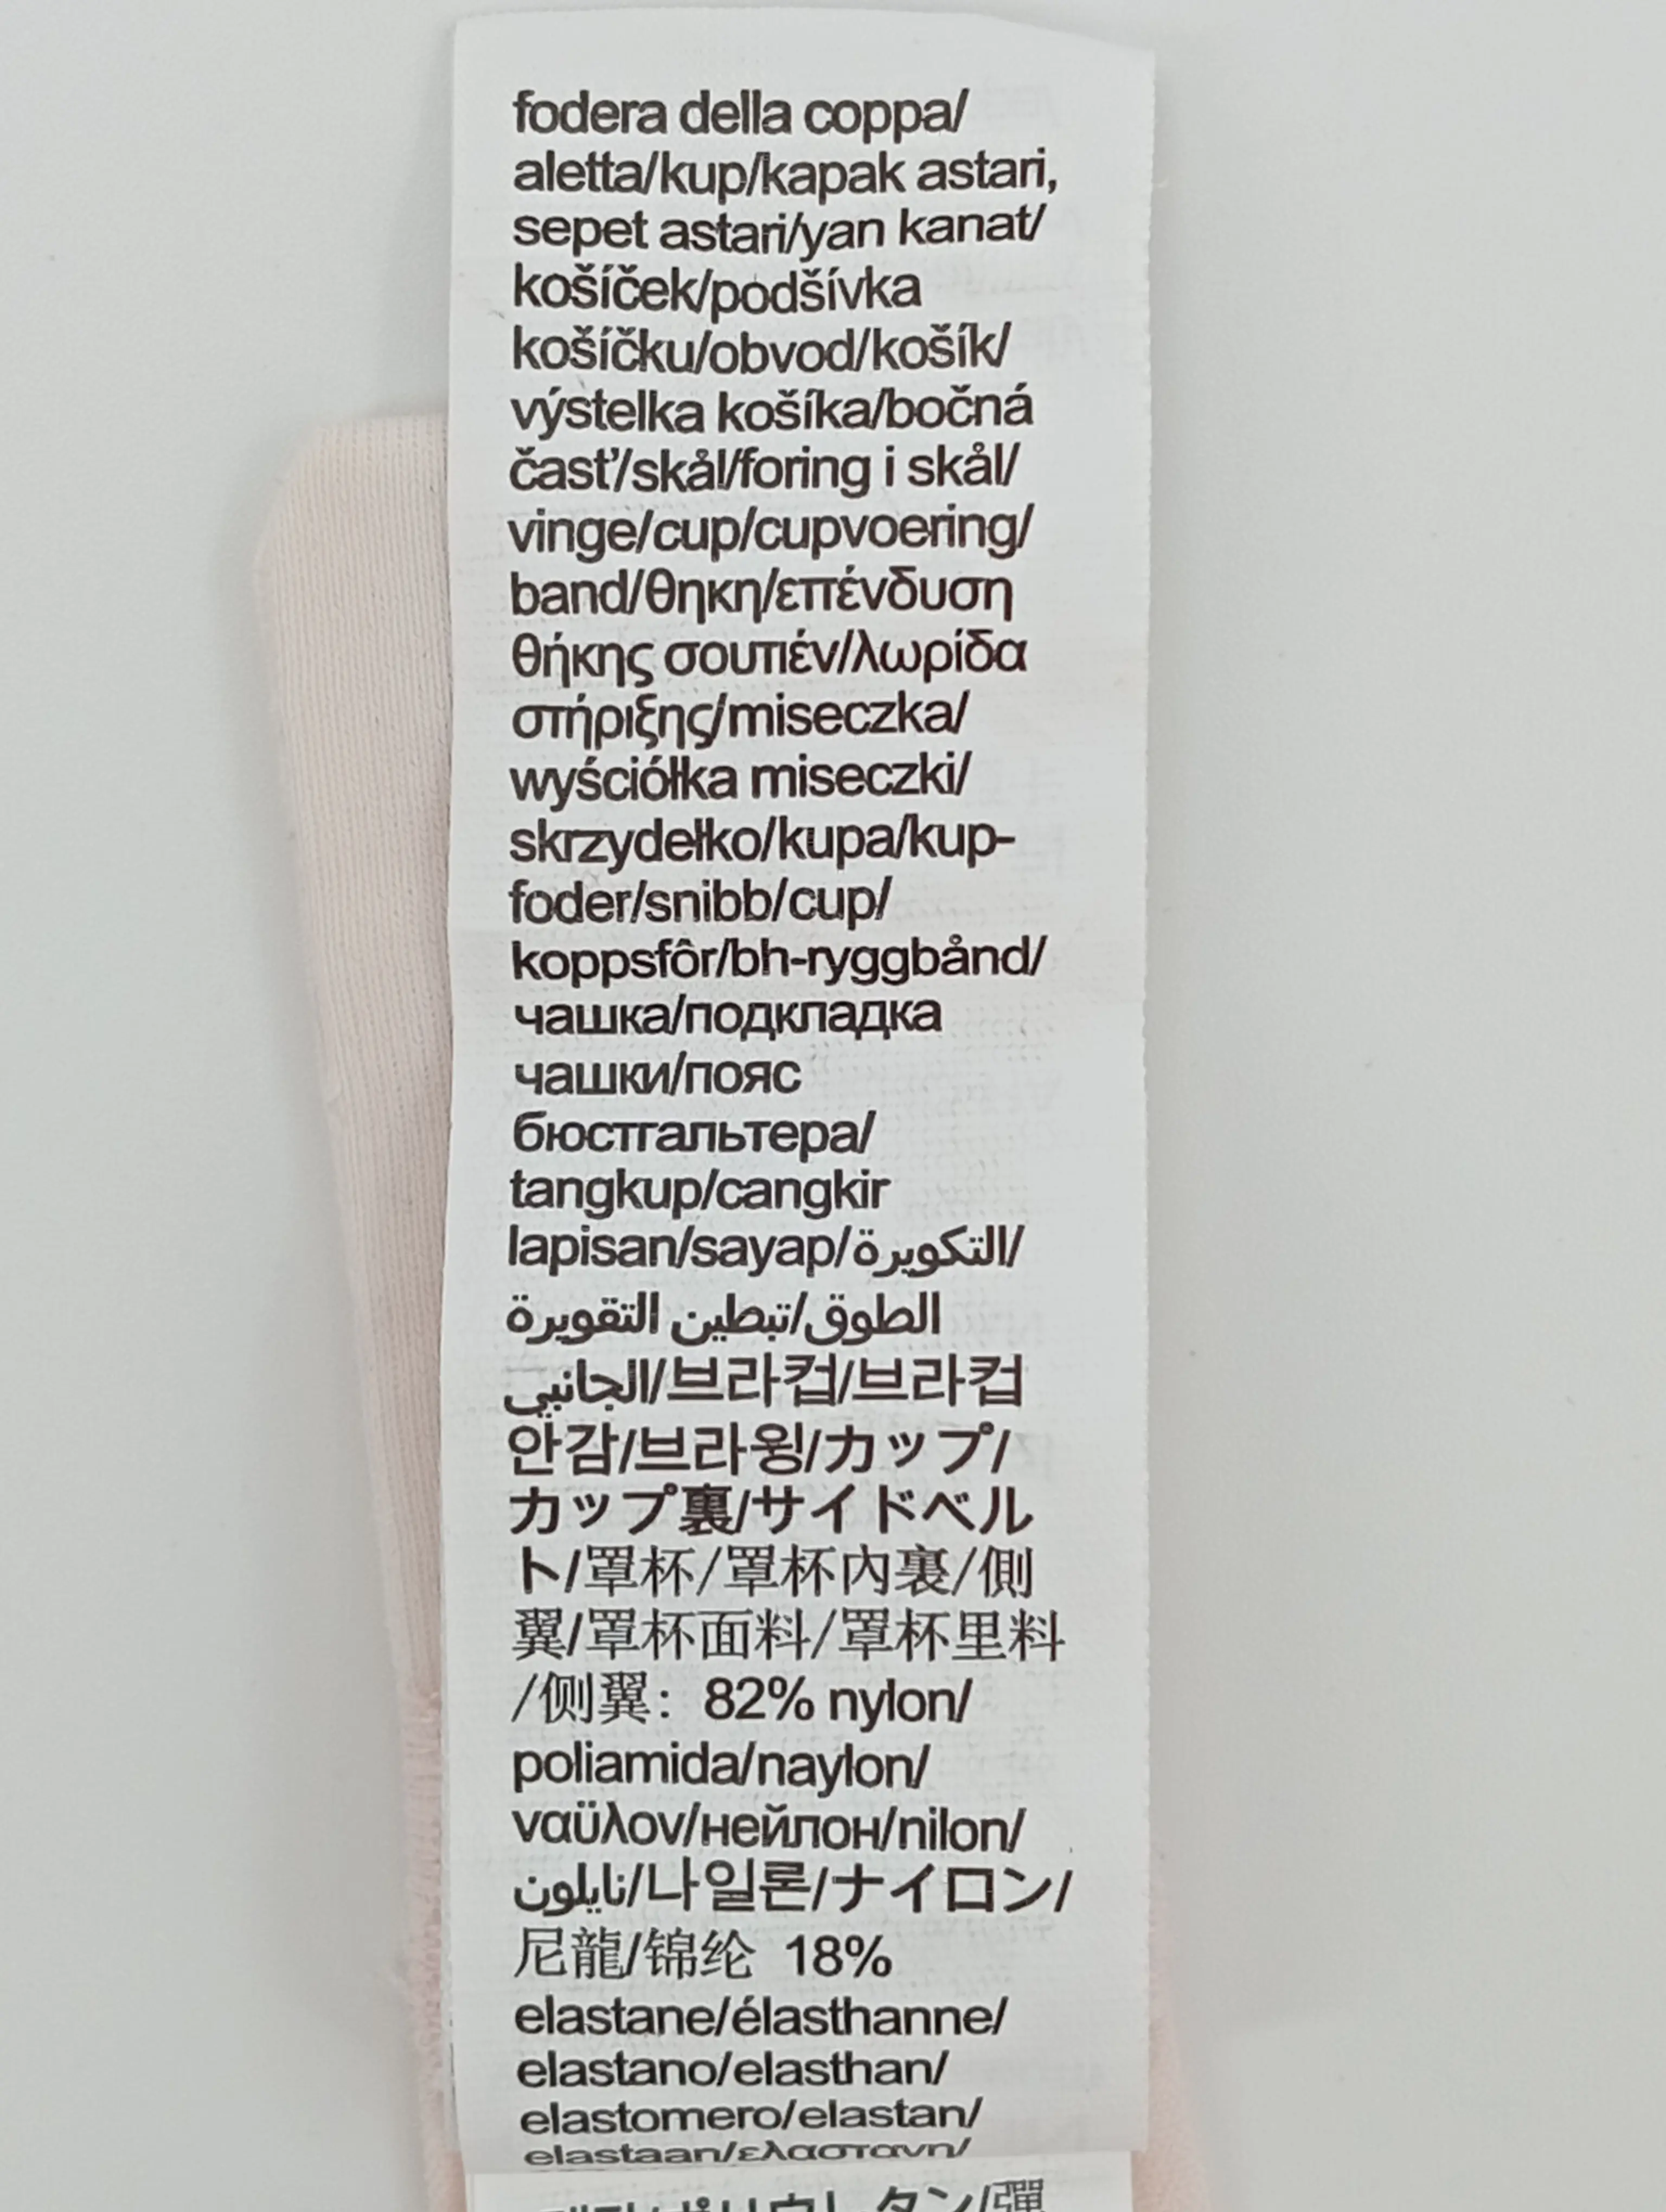 fodera della coppa/
aletta/kup/kapak astari,
sepet astari/yan kanat/
košíček/podšívka
košíčku/obvod/košík/
výstelka košíka/bočná
časť/skål/foring i skål/
vinge/cup/cupvoering/
band/θηκη/επένδυση
θήκης σουτιέν/λωρίδα
στήριξης/miseczka/
wyściółka miseczki/
skrzydełko/kupa/kup-
foder/snibb/cup/
koppsfôr/bh-ryggbånd/
чашка/подкладка
чашки/пояс
бюстгальтера/
tangkup/cangkir
lapisan/sayap/التكويرة/
الطوق/تبطين التقويرة
الجانبي/브라컵/브라컵
안감/브라윙/カップ/
カップ裏/サイドベル
ト/罩杯/罩杯內裏/側
翼/罩杯面料/罩杯里料
/侧翼: 82% nylon/
poliamida/naylon/
ναϋλον/нейлон/nilon/
نايلون/나일론/ナイロン/
尼龍/锦纶 18%
elastane/élasthanne/
elastano/elasthan/
elastomero/elastan/
elastaan/ελαστανη/
タン/彈